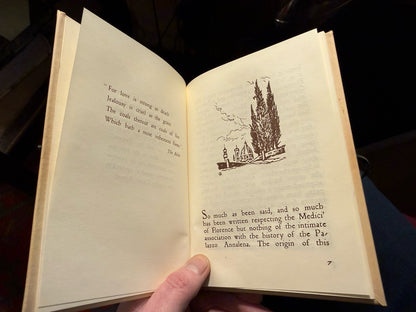 "For love is strong as death
Jealousy is cruel as the grave
The coals thereof are coals of fire
Which hath a most vehement flame"
The Bible
So much as been said, and so much
has been written respecting the Medici
of Florence but nothing of the intimate
association with the history of the Pa-
lazzo Annalena. The origin of this
7